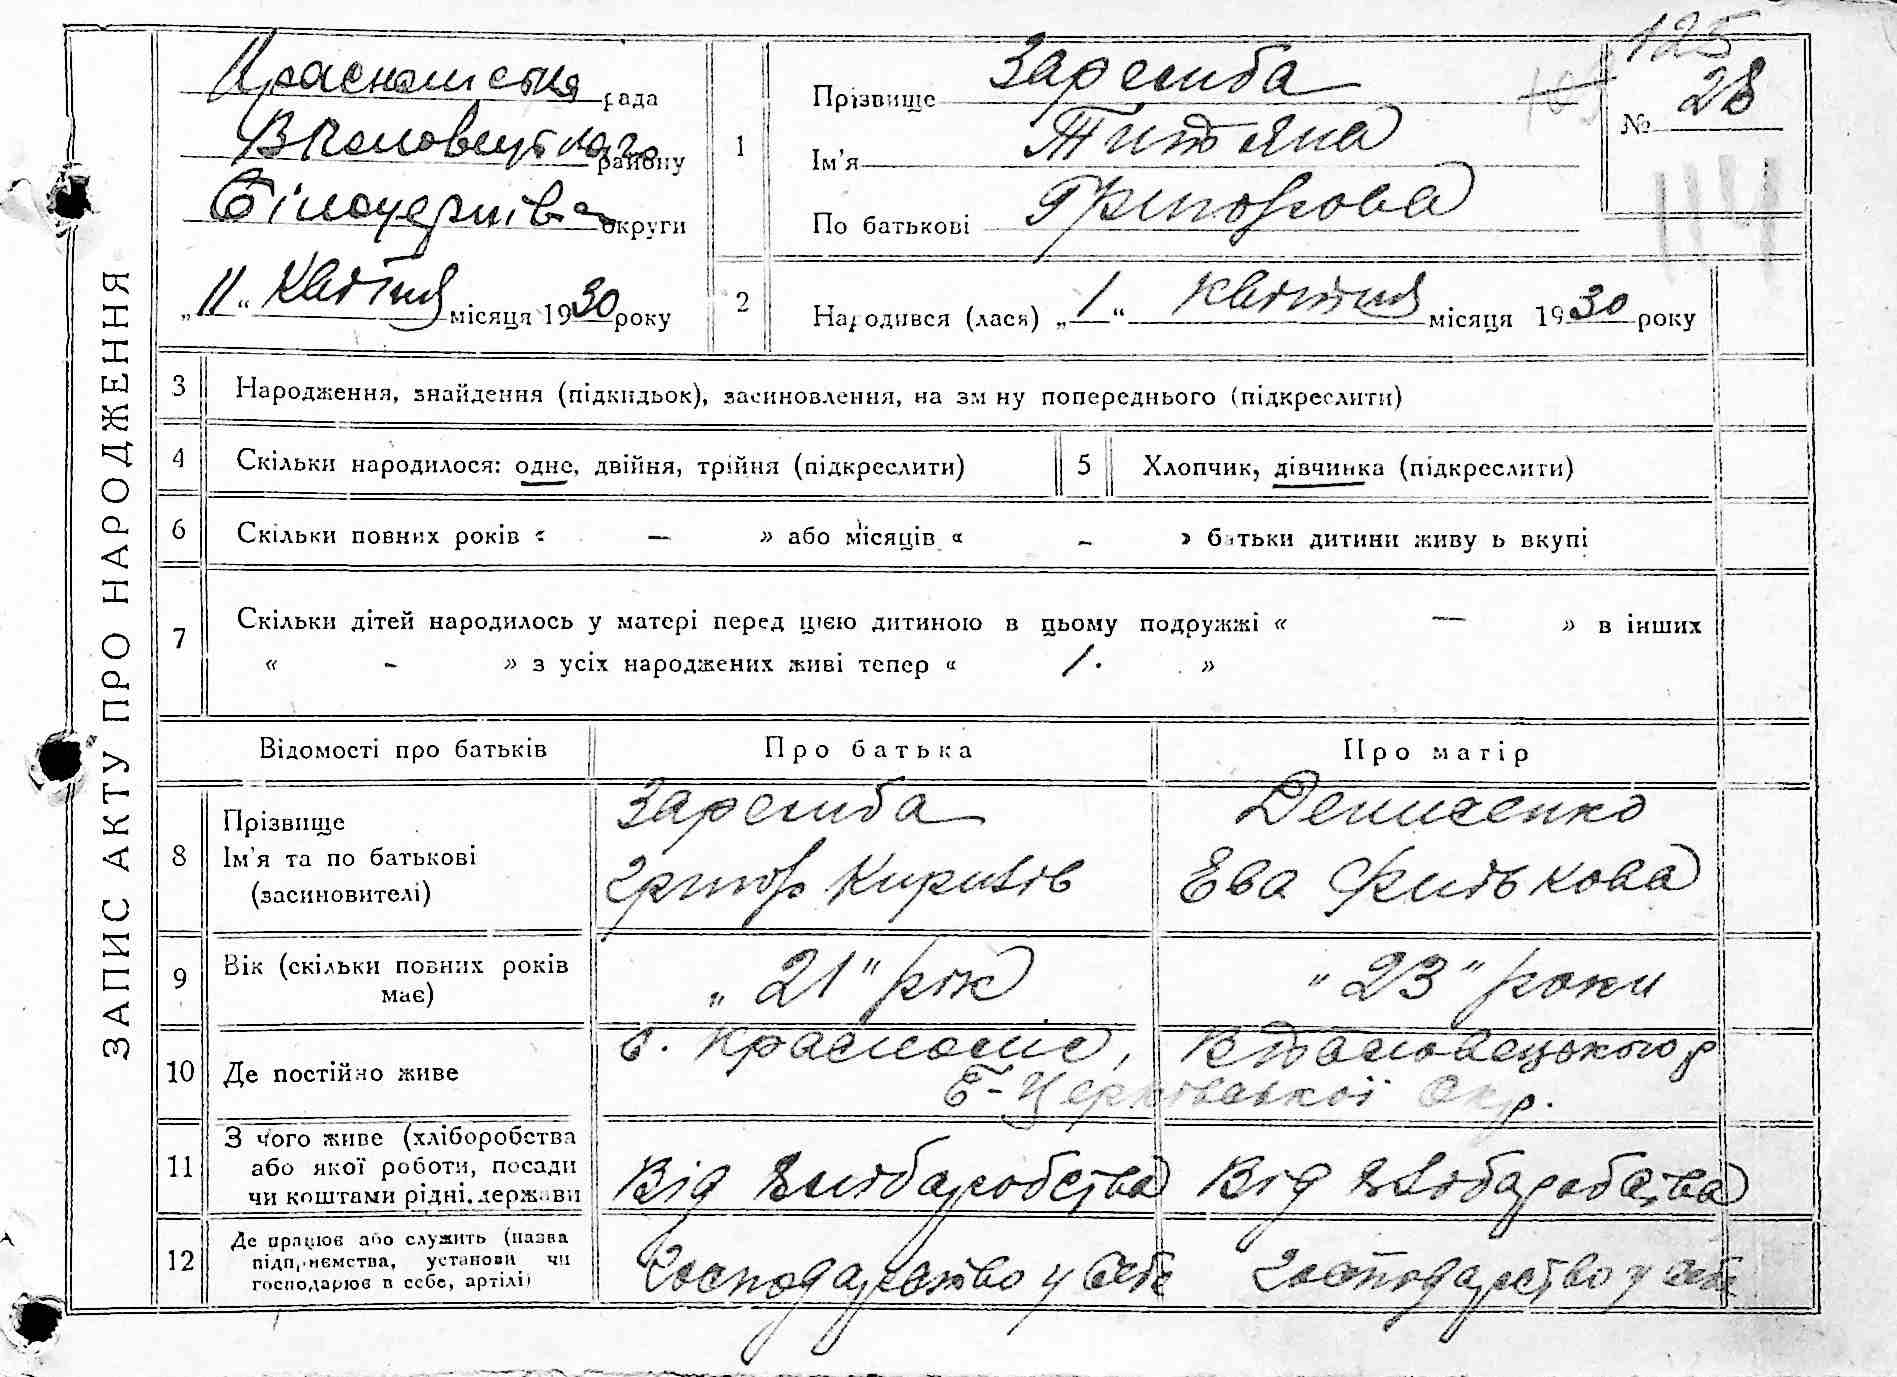 ЗАПИС АКТУ ПРО НАРОДЖЕННЯ
125
Краснолиська рада
району
Білоцерків округи
„11“ Квітня місяця 1930 року
1
Прізвище Заремба
Ім'я Титяна
По батькові Григорова
№ 28
114
2
Народився (лася) „1“ Квітня місяця 1930 року
3 Народження, знайдення (підкидьок), засиновлення, на зм ну попереднього (підкреслити)
4 Скільки народилося: одне, двійня, трійня (підкреслити)
5 Хлопчик, дівчинка (підкреслити)
6 Скільки повних років « — » або місяців « - » батьки дитини живу ь вкупі
7 Скільки дітей народилось у матері перед цією дитиною в цьому подружжі « — » в інших
« - » з усіх народжених живі тепер « 1. »
Відомості про батьків
Про батька
Про матір
8 Прізвище
Ім'я та по батькові
(засиновителі)
Заремба
Григор Кирилів
Денисенко
Ева Фитькова
9 Вік (скільки повних років
має)
„21" рік
„23" роки
10 Де постійно живе
с. Краснолис,
Б-Церківської Окр.
11 З чого живе (хліборобства
або якої роботи, посади
чи коштами рідні, держави
Від хліборобства
Від хліборобства
12 Де працює або служить (назва
підприємства, установи чи
господарює в себе, артілі)
Господарство у себе
Господарство у себе